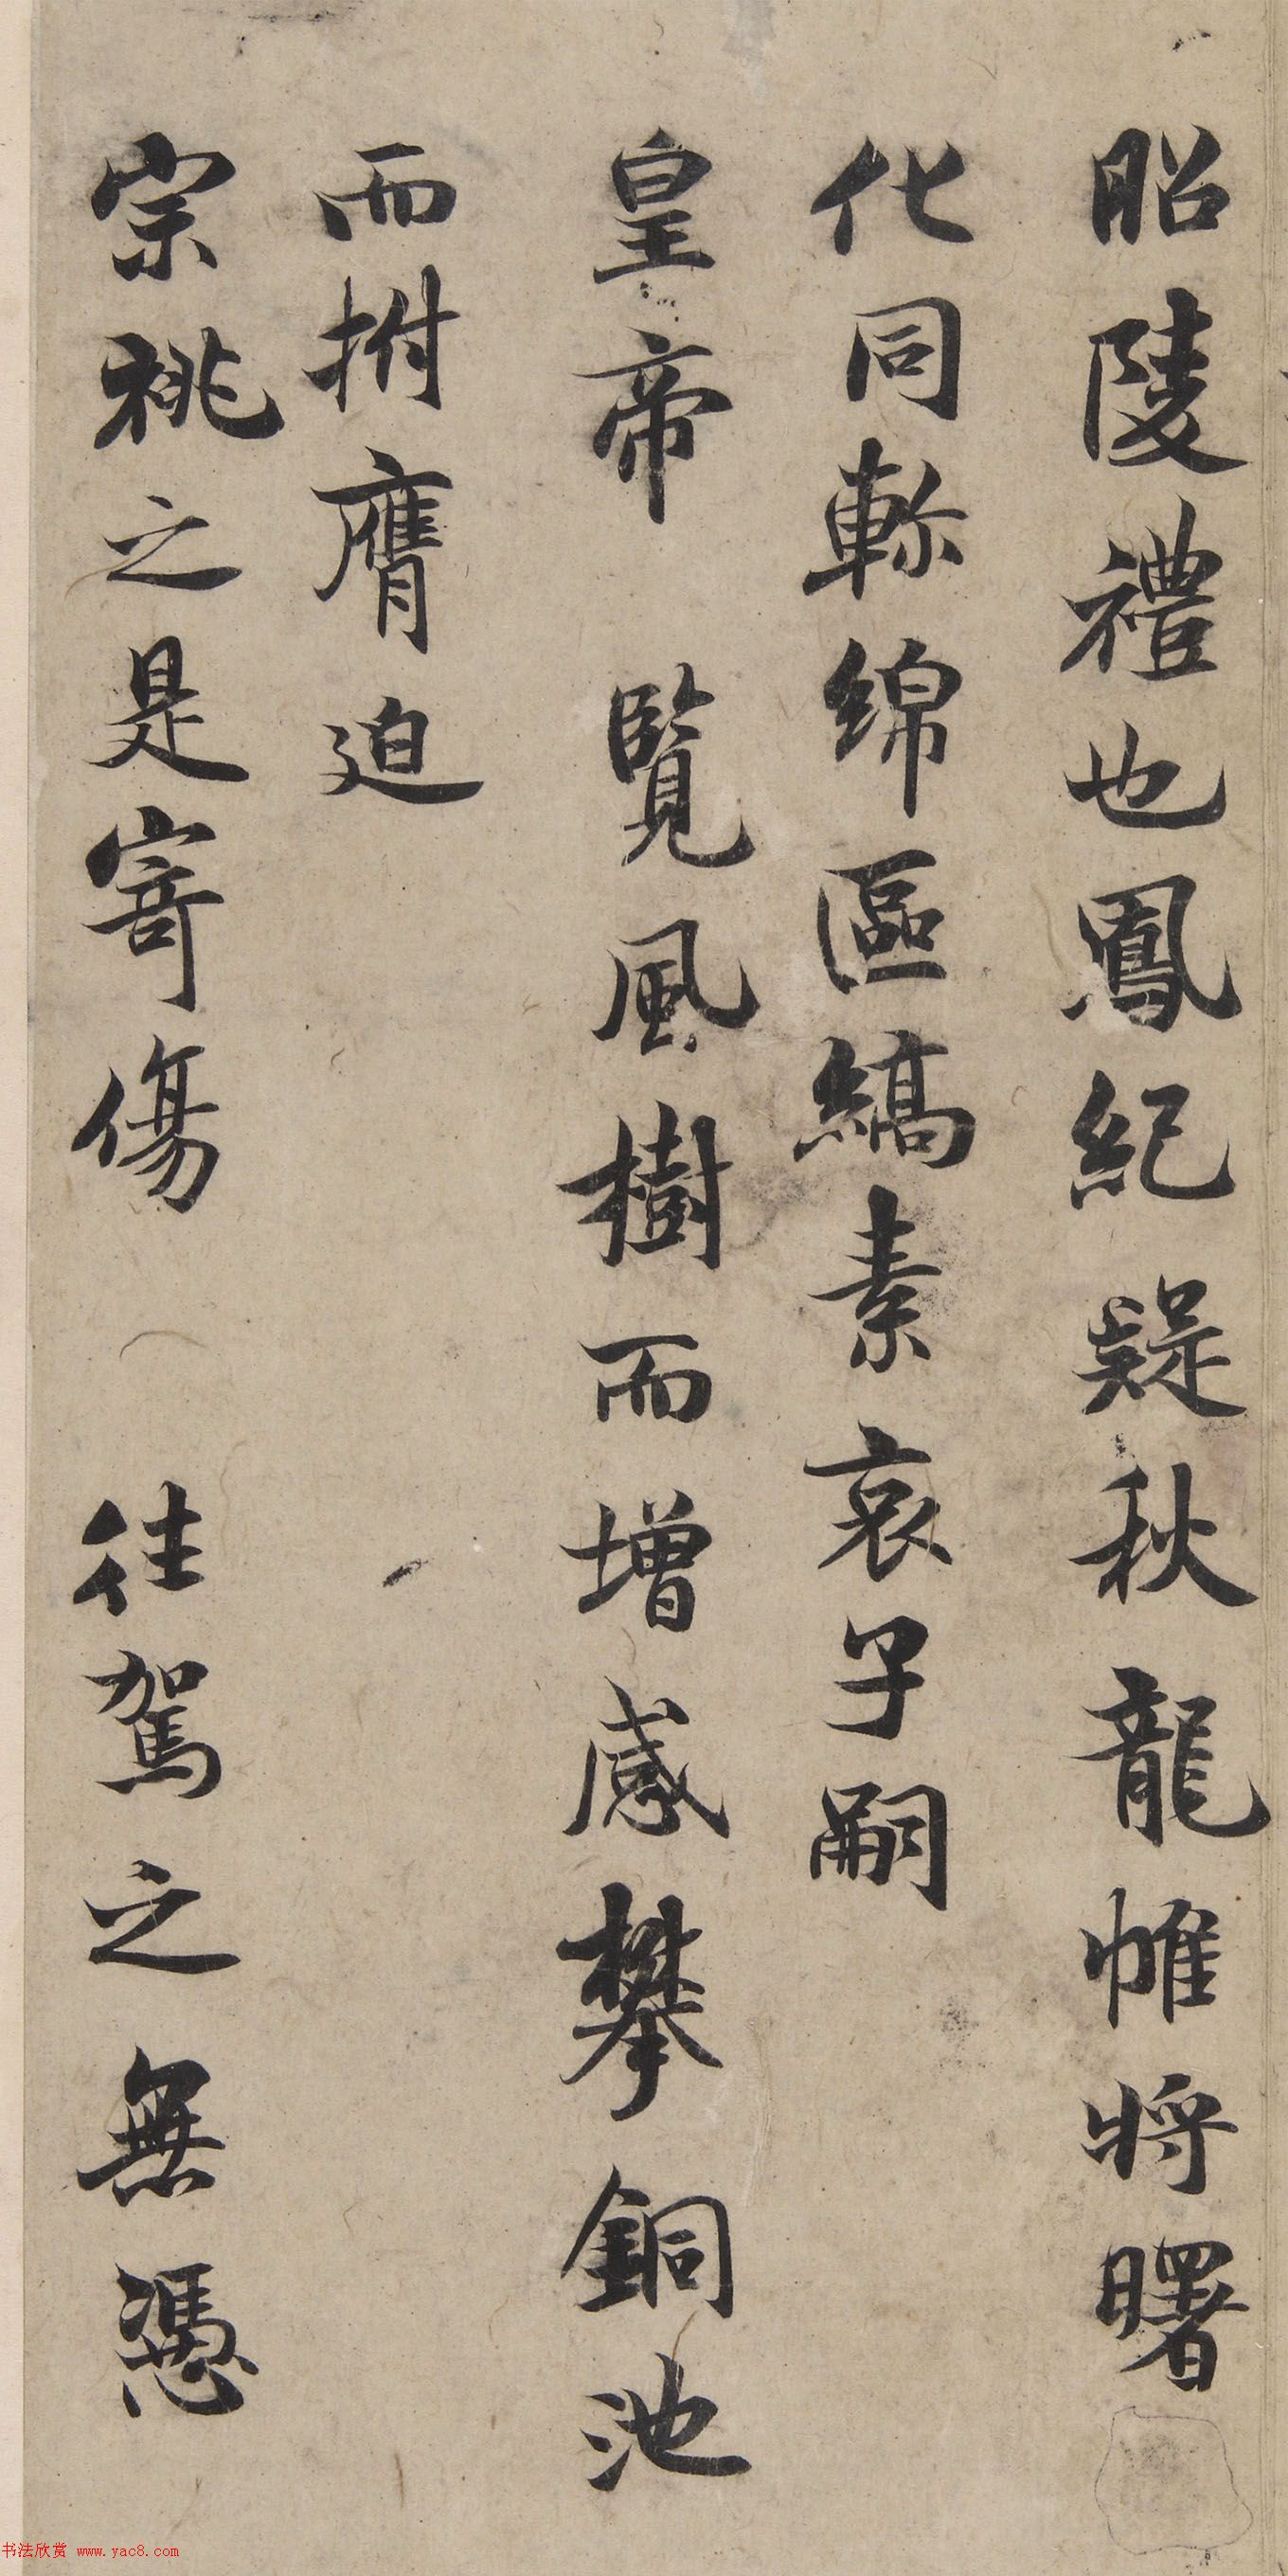 昭陵禮也鳳紀疑秋龍帷將曙
化同軫綿區縞素哀子嗣
皇帝 覽風樹而增感攀銅池
而拊膺迫
宗祧之是寄傷 往駕之無憑
书法欣赏 www.yac8.com